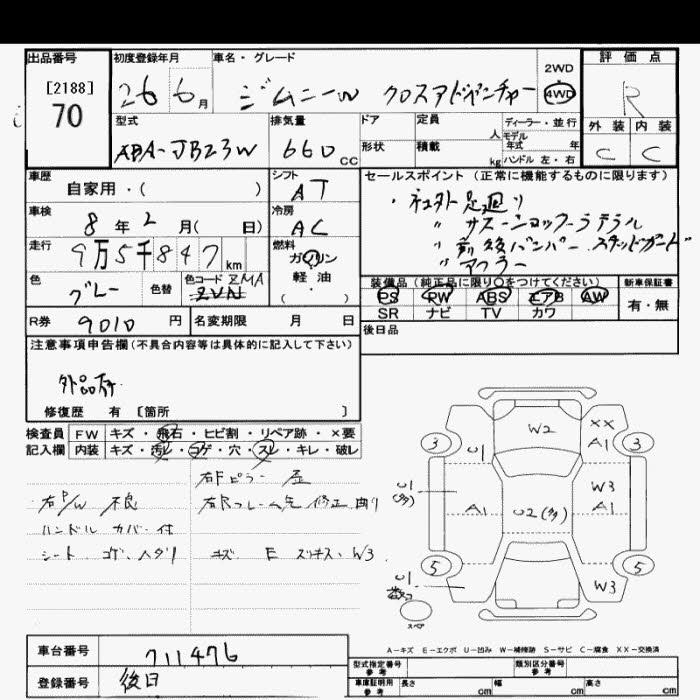 出品番号
[2188]
70
初度登録年月
26 6月
車名・グレード
ジムニーW クロスアドベンチャー
2WD
4WD
評価点
R
外装 内装
C C
型式
ABA-JB23W
排気量
660 CC
ドア
形状
定員 人
積載 kg
ディーラー・並行
モデル
年式 年
ハンドル 左・右
車歴
自家用・( )
シフト
AT
セールスポイント (正常に機能するものに限ります)
・社外足廻り
〃 サスーショックーラテラル
〃 前後バンパー スキッドガード
〃 マフラー
車検
8年2月( 日)
冷房
AC
走行
9万5千847km
燃料
ガソリン
軽油・
( )
色
グレー
色替
色コード ZMA
ZVN
装備品 (純正品に限り○をつけてください)
PS PW ABS エアB AW
SR ナビ TV カワ
新車保証書
有・無
R券 9010 円
名変期限 月 日
後日品
注意事項申告欄(不具合内容等は具体的に記入して下さい)
外品有
修復歴 有 〔箇所 〕
検査員
記入欄
FW キズ・飛石・ヒビ割・リペア跡・×要
内装 キズ・汚レ・コゲ・穴・スレ・キレ・破レ
右Fピラー 歪
右P/W 不良 右Rフレーム先 修正 曲り
ハンドル カバー付
シート コゲ、ヘタリ キズ E ズリキス、W3
W2
XX
A1
3 3
U1
U1
(多)
W3
A1 A1
U2(多)
5 5
U1
W3
スペア
A-キズ E-エクボ U-凹み W-補修跡 S-サビ C-腐食 XX-交換済
車台番号 711476
登録番号 後日
型式指定番号
参考
類別区分番号
参考
車庫証明用
参考
長さ cm 幅 cm 高さ cm